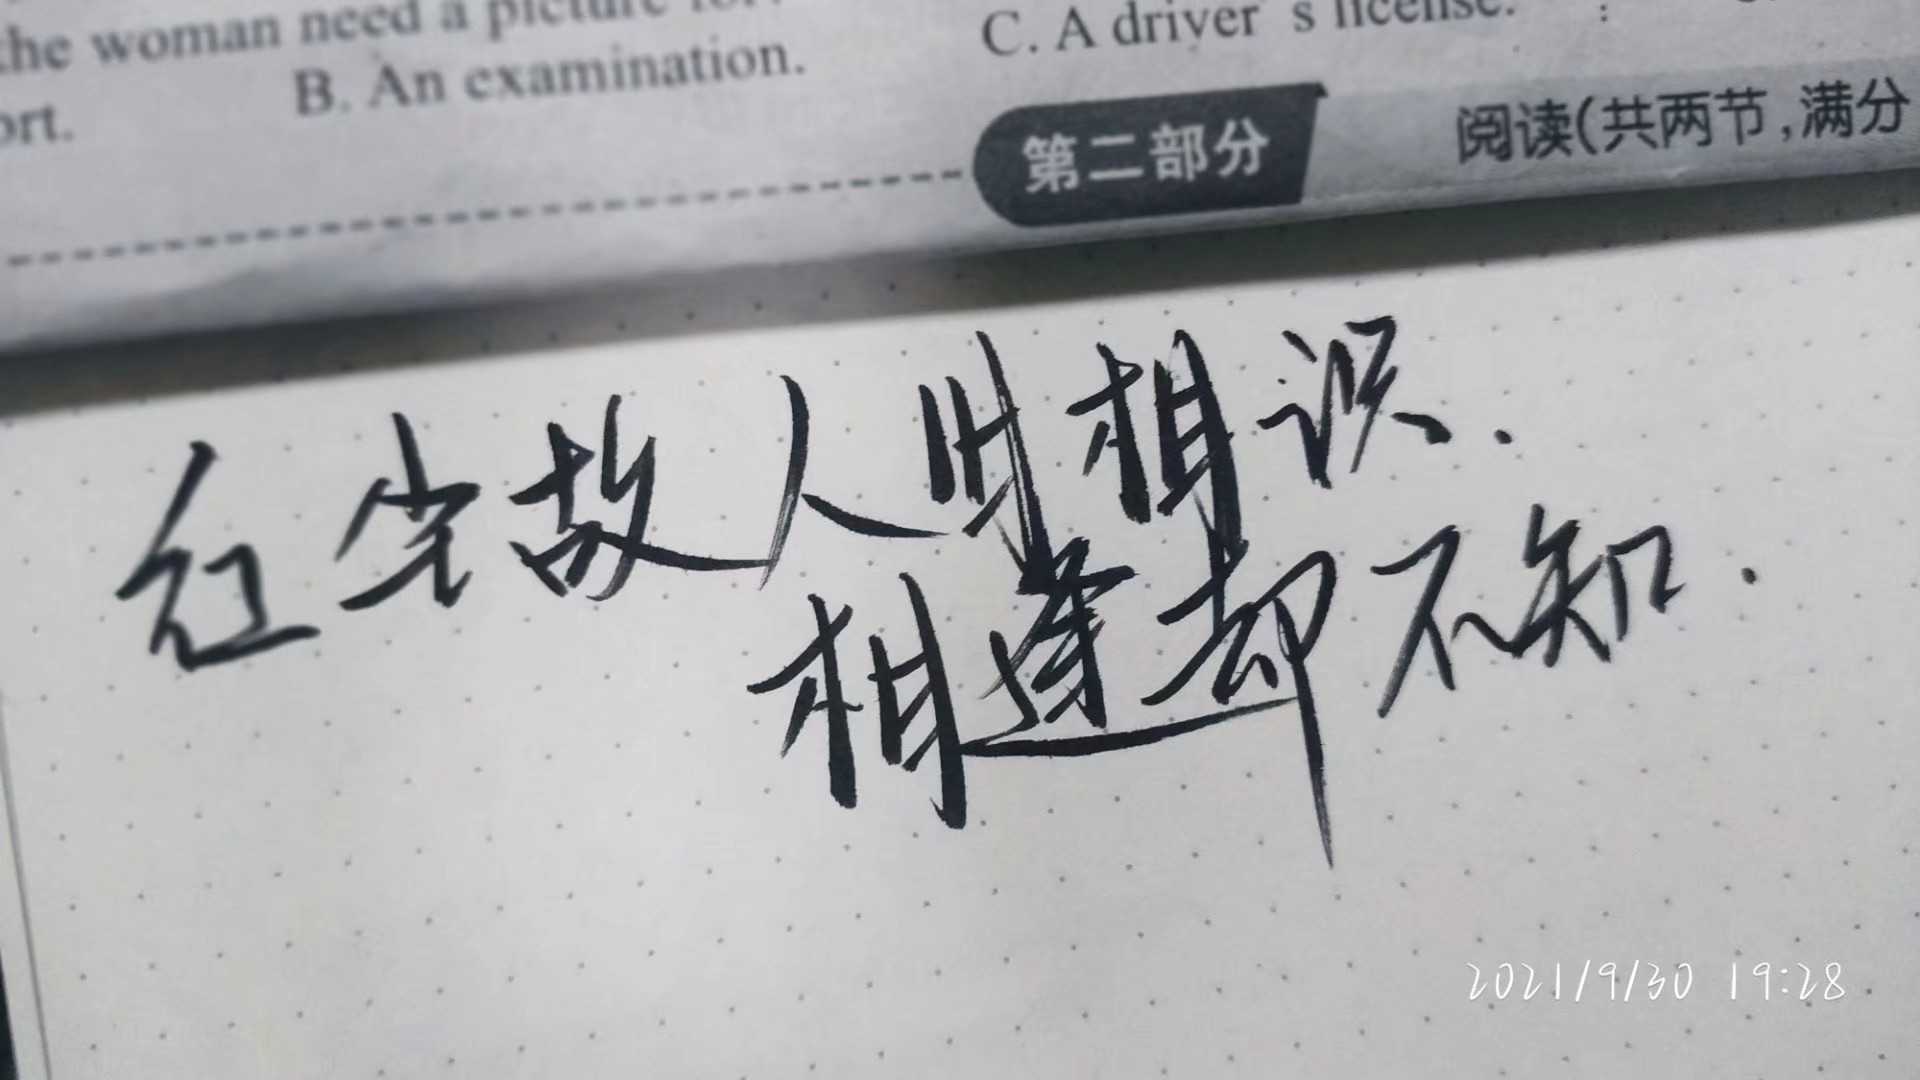 the woman need a picture for
ort. B. An examination. C. A driver's license.
第二部分 阅读(共两节,满分
红尘故人旧相识.
相逢却不知.
2021/9/30 19:28